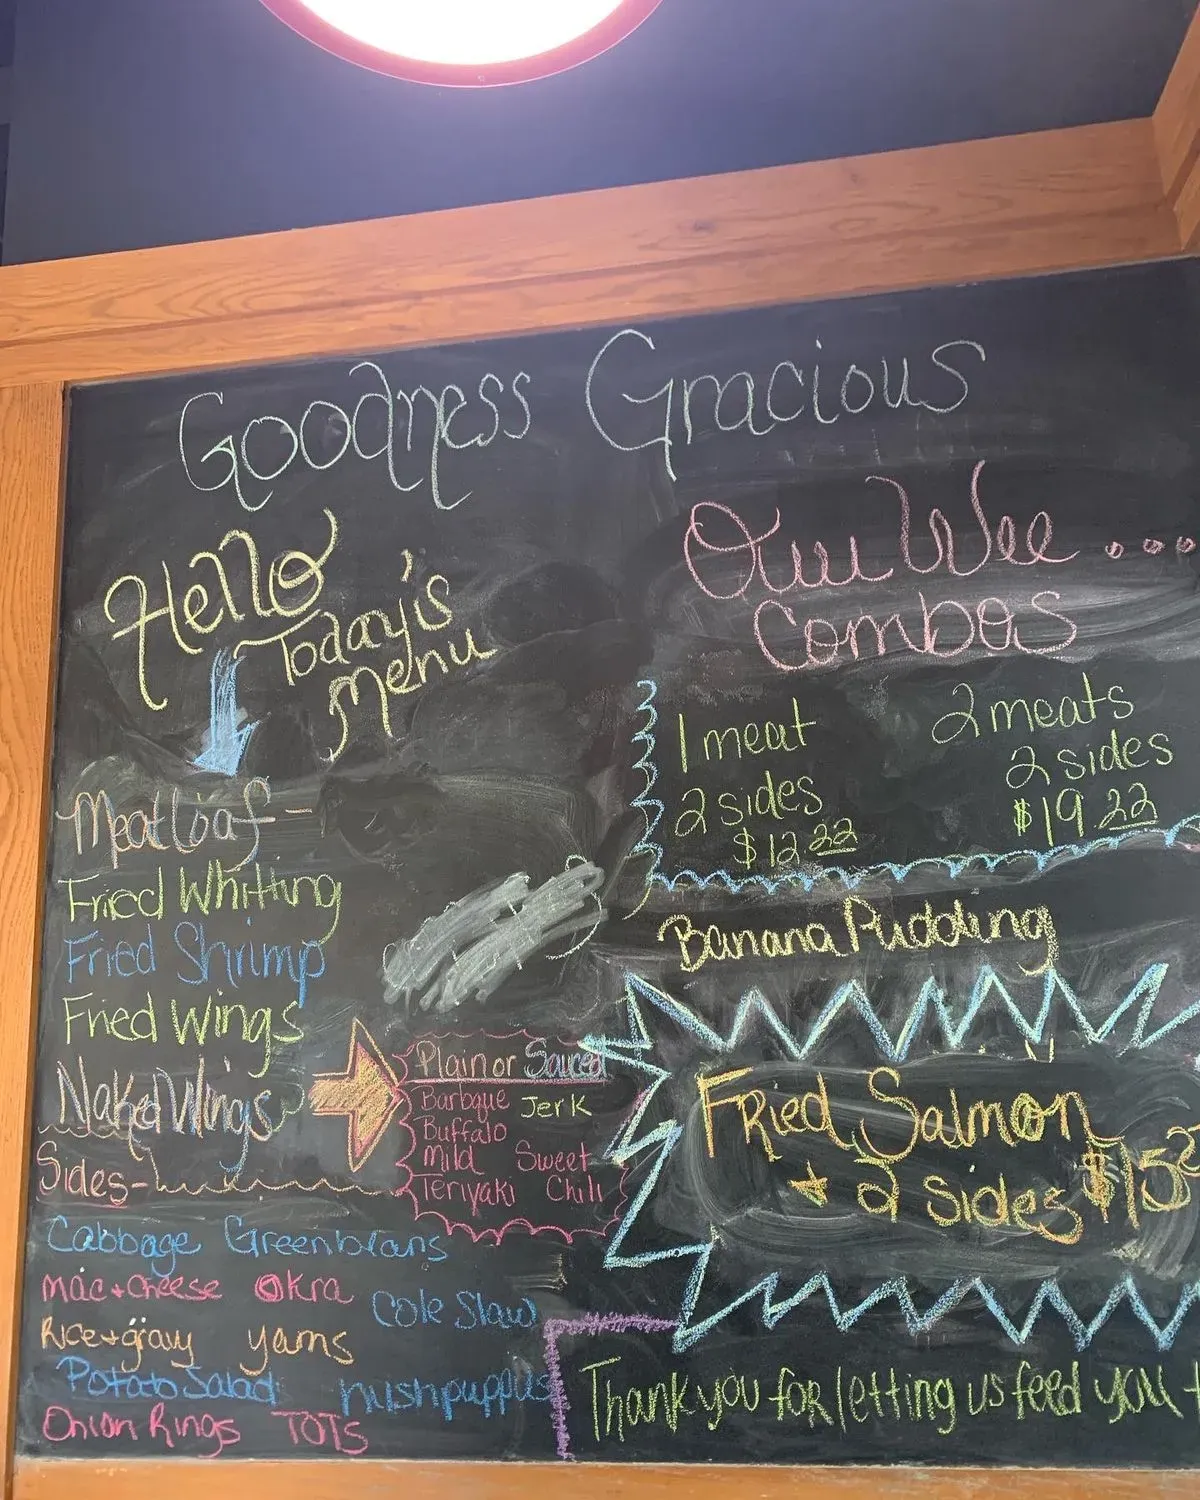 Goodness Gracious
Hello
Today's
Menu
Meatloaf -
Fried Whitting
Fried Shrimp
Fried Wings
Naked Wings
Plain or Sauced
Barbque Jerk
Buffalo
Mild Sweet
Teriyaki Chili
Sides-
Cabbage Greenbrans
Mac + Cheese Okra
Cole Slaw
Rice + gravy yams
Potato Salad hushpuppies
Onion Rings TOTs
Ouu Wee ....
Combos
1 meat
2 sides
$12.22
2 meats
2 sides
$19.22
Banana Pudding
Fried Salmon
+ 2 sides $15
Thank you for letting us feed you